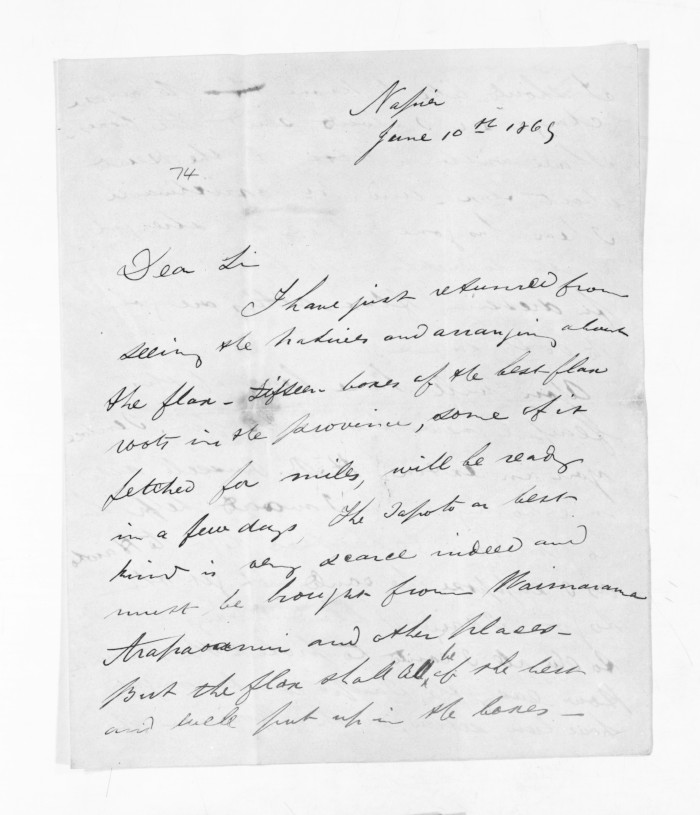 Napier
June 10th 1869
74.
Dear Sir
I have just returned from
seeing the natives and arranging about
the flax - fifteen boxes of the best flax
roots in the province, some of it
fetched for miles, will be ready
in a few days The Tapoto or best
kind is very scarce indeed and
must be bought from Waimarama
and other places -
But the flax shall all be of the best
and well put up in the boxes -